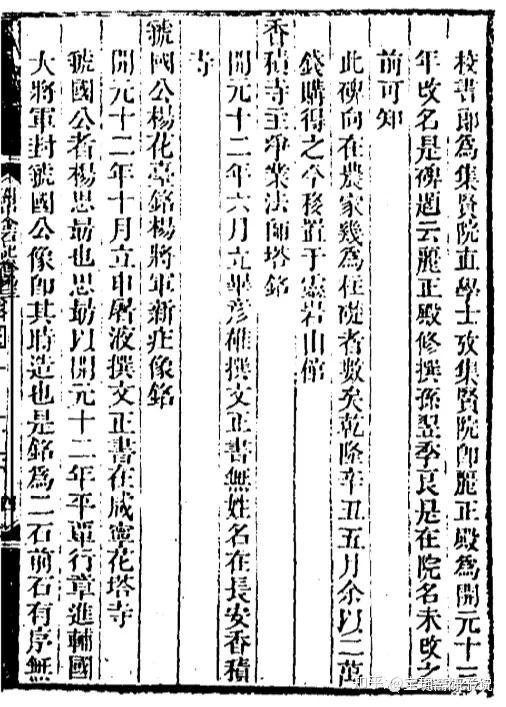 校書郎為集賢院直學士攷集賢院即麗正殿為開元十三
年改名是碑題云麗正殿修撰孫翌季良是在院名未改之
前可知
此碑向在農家幾為柱礎者數矣乾隆辛丑五月余以二萬
錢購得之今移置于靈岩山館
香積寺主淨業法師塔銘
開元十二年六月立畢彥雄撰文正書無姓名在長安香積
寺
虢國公楊花臺銘楊將軍新莊像銘
開元十二年十月立申屠液撰文正書在咸寧花塔寺
虢國公者楊思勗也思勗以開元十二年平覃行章進輔國
大將軍封虢國公像即其時造也是銘為二石前石有序無
關中金石記卷
四
知乎